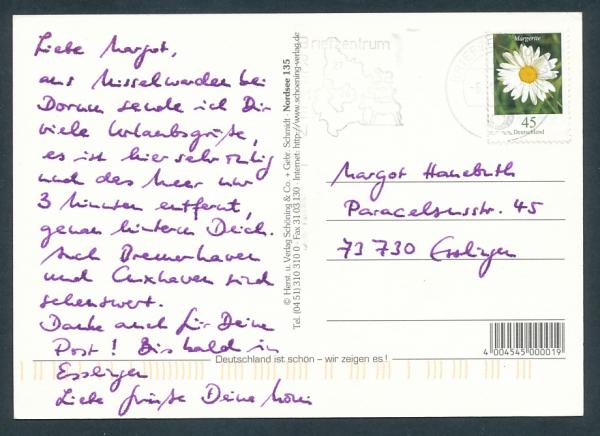 Liebe Margot,
aus Misselwarden bei
Dorum sende ich Dir
viele Urlaubsgrüße,
es ist hier sehr ruhig
und das Meer nur
3 Minuten entfernt,
genau hinterm Deich.
Auch Bremerhaven
und Cuxhaven sind
sehenswert.
Danke auch für Deine
Post! Bis bald in
Esslingen
Liebe Grüße Deine
© Herst. u. Verlag Schöning & Co. + Gebr. Schmidt · Nordsee 135
Tel. (04 51) 310 310 0 · Fax 31 03 130 · Internet: http://www.schoening-verlag.de
Briefzentrum
Margerite
45
Deutschland
Margot Hanebuth
Paracelsusstr. 45
73 730 Esslingen
4 004545 000019
Deutschland ist schön – wir zeigen es !